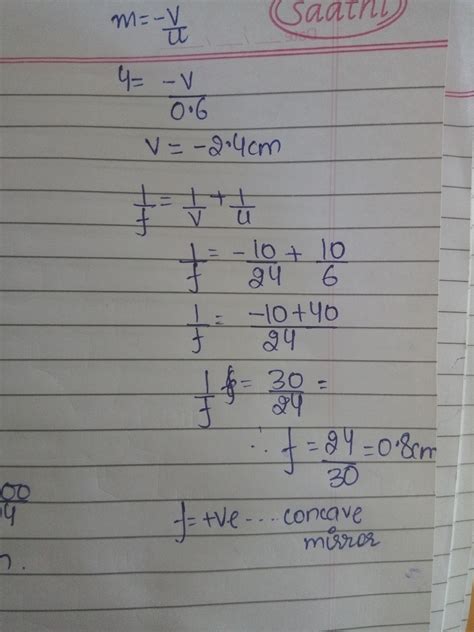 Saathi
m = -v/u
4 = -v/0.6
v = -2.4cm
1/f = 1/v + 1/u
1/f = -10/24 + 10/6
1/f = -10+40/24
1/f = 30/24 =
∴ f = 24/30 = 0.8cm
00
4
f = +ve .... concave
mirror
n.